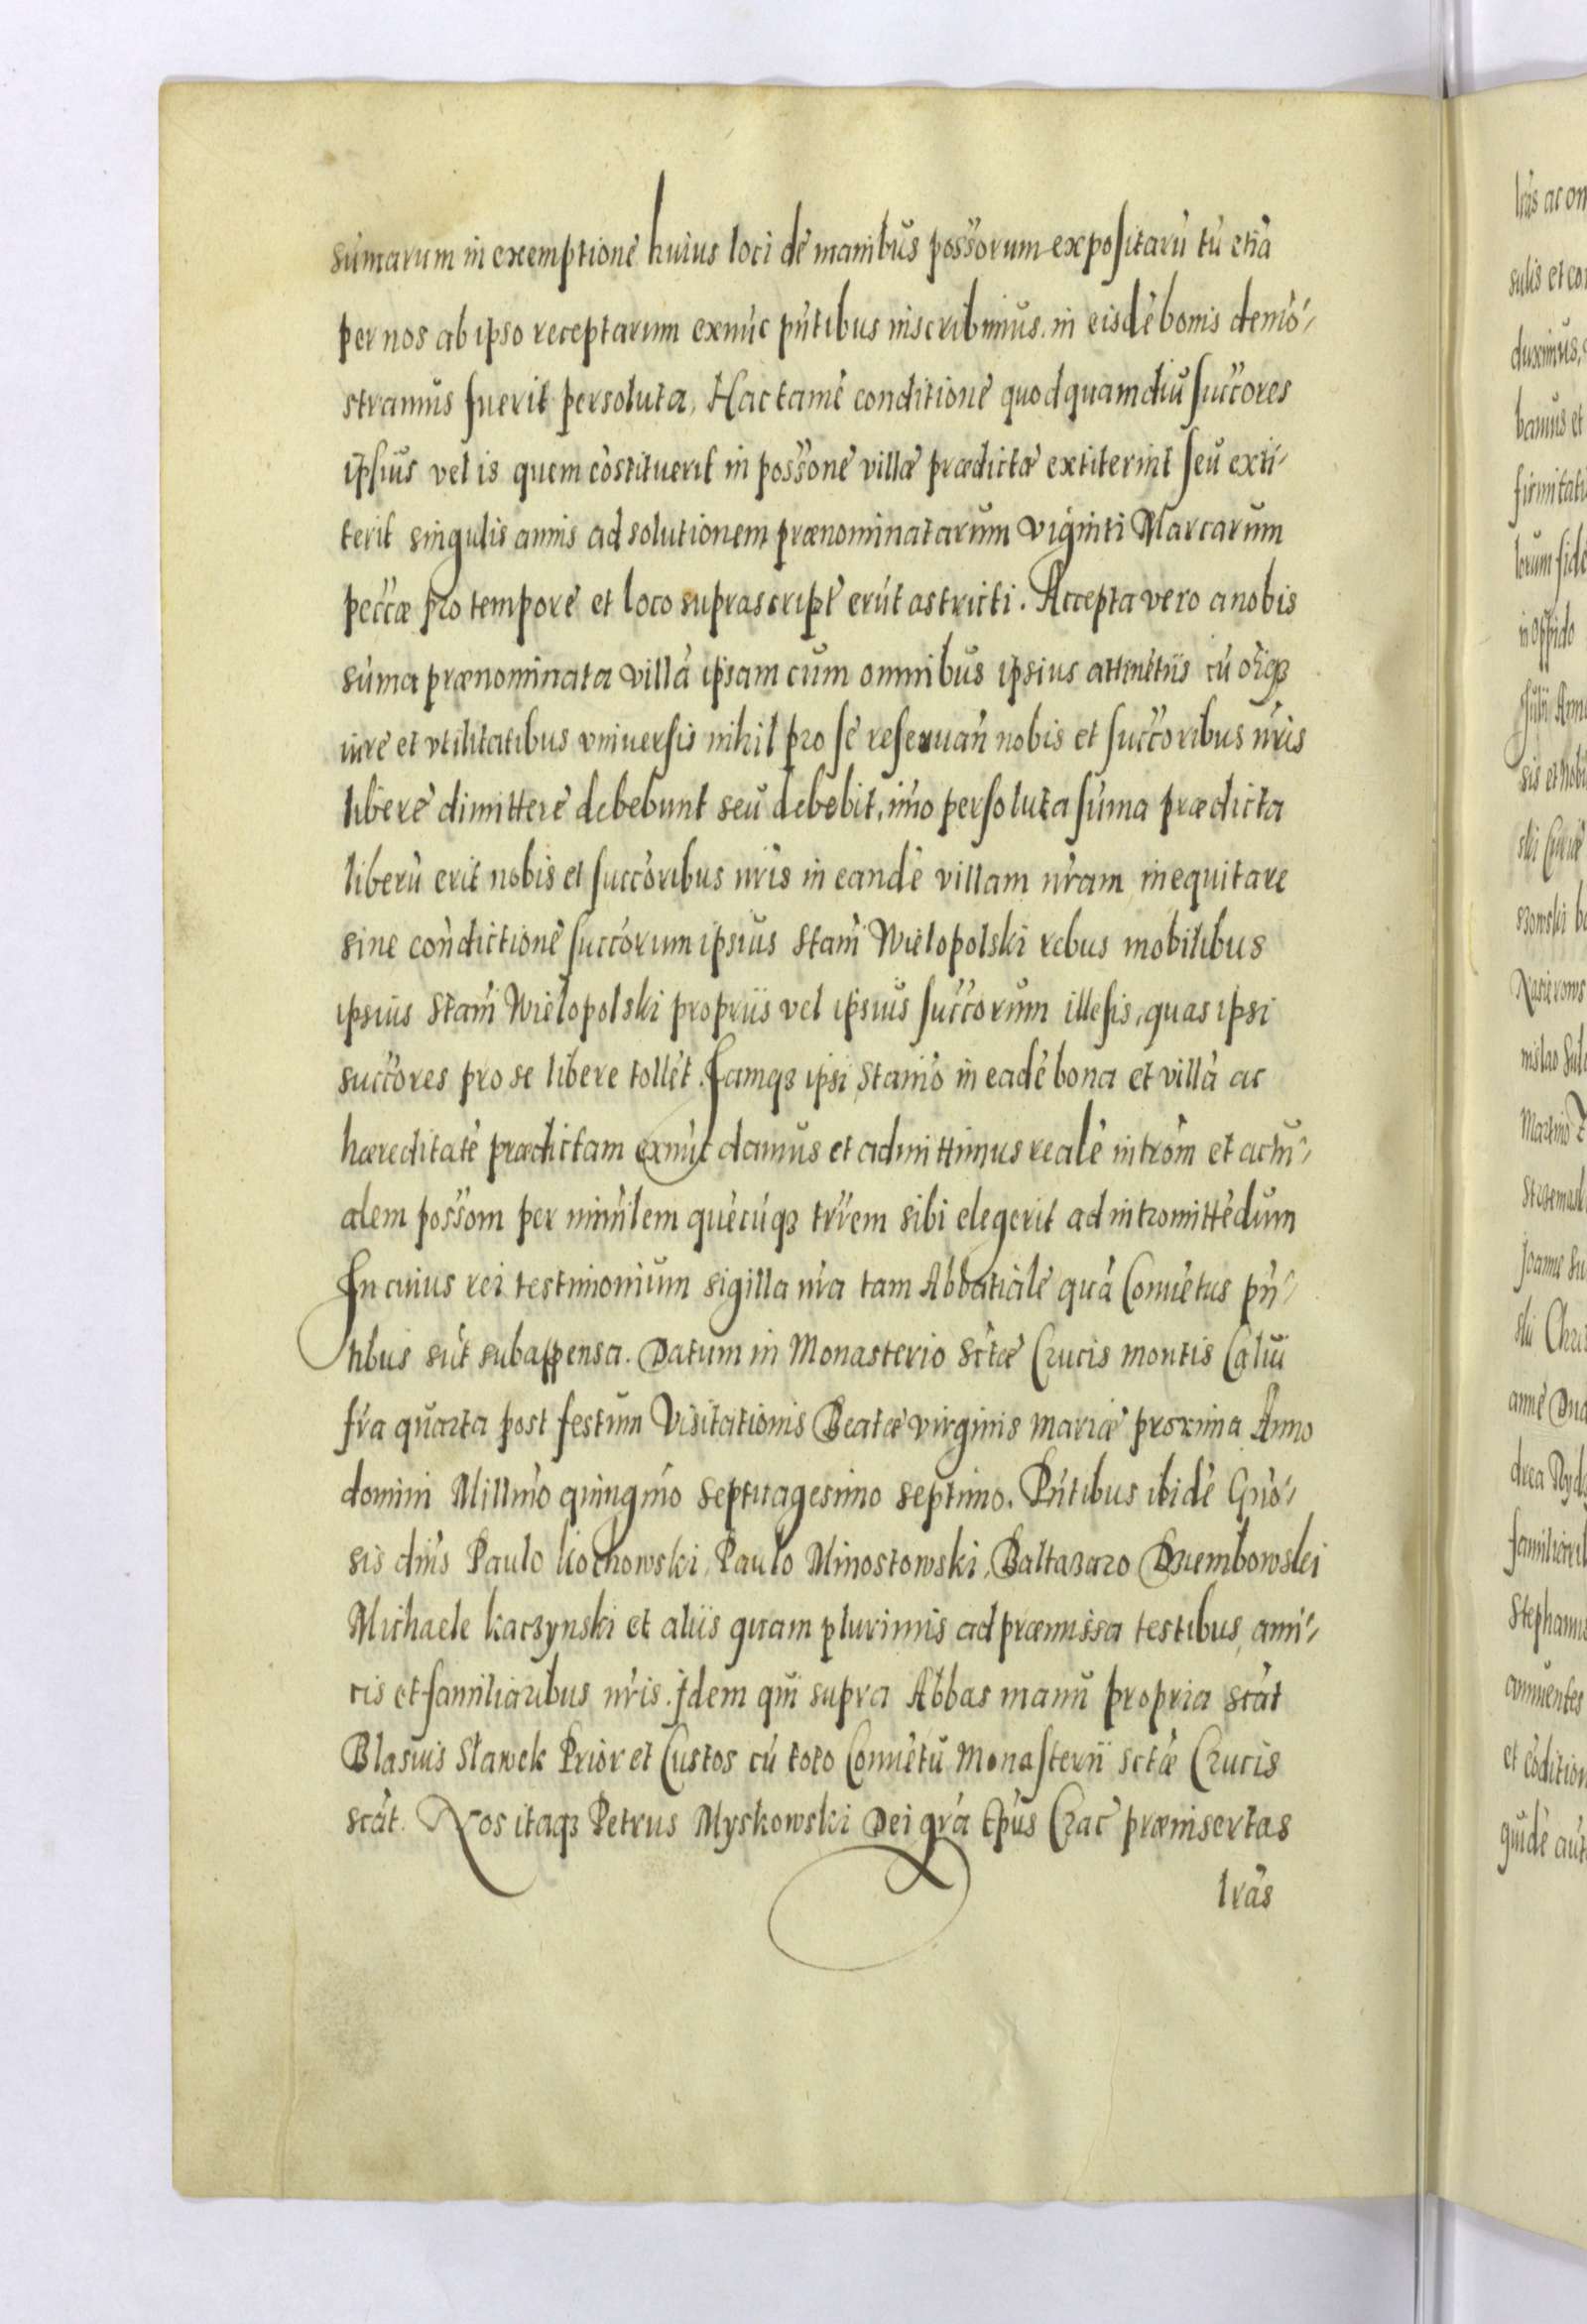 sum̃arum in exemptionẽ huius loci de manibus posšorum expositarũ tũ etiã
per nos ab ipso receptarum exnũc pñtibus inscribimus in eisdẽ bonis demõ-
stramus fuerit persoluta, Hac tamẽ conditionẽ quod quamdiu succ̃ores
ipsius vel is quem cõstituerit in posšonẽ villæ prædictæ extiterint seu exti-
terit singulis annis ad solutionem prænominatarum viginti Marcarum
pec̃cæ pro tempore et loco suprascript̃ erũt astricti. Accepta vero a nobis
sũma prænominata villã ipsam cum omnibus ipsius attinẽtiis cũ oĩqȝ
iure et vtilitatibus vniuersis nihil pro se reseruañ nobis et succ̃oribus nr̃is
liberè dimittere debebunt seu debebit, im̃o persoluta sũma prædicta
liberũ erit nobis et succ̃oribus nr̃is in eandẽ villam nr̃am inequitare
sine cõndictionẽ succ̃orum ipsius Stañi Wielopolski rebus mobilibus
ipsius Stañi Wielopolski propriis vel ipsius succ̃orum illesis, quas ipsi
succ̃ores pro se libere tollẽt. Iamqȝ ipsi Stañio in eadẽ bona et villã ac
hæreditatẽ prædictam exnũc damus et admittimus realẽ intrõm et actu-
alem posšom per miñilem quẽcũqȝ trr̃em sibi elegerit ad intromittẽdum
In cuius rei testimonium sigilla nr̃a tam Abbatiale quã Conuẽtus pñ-
tibus sũt subappensa. Datum in Monasterio Sctæ Crucis montis Calui
fr̃a quarta post festum Visitationis Beatæ virginis mariæ proxima Anno
domini Millm̃o quingm̃o septuagesimo septimo. Pñtibus ibidẽ Gñõ-
sis dñis Paulo Kochowski, Paulo Minostowski, Baltazaro Dziembowski
Michaele Kaczynski et aliis quam plurimis ad præmissa testibus, ami-
cis et familiaribus nr̃is. Idem qui supra Abbas manu propria scãt
Blasius Sławek Prior et Custos cũ toto Conuẽtu Monasterii Sctæ Crucis
scãt. Nos itaqȝ Petrus Myskowski Dei grã Ep̃us Crac̃ præinsertas
lrãs